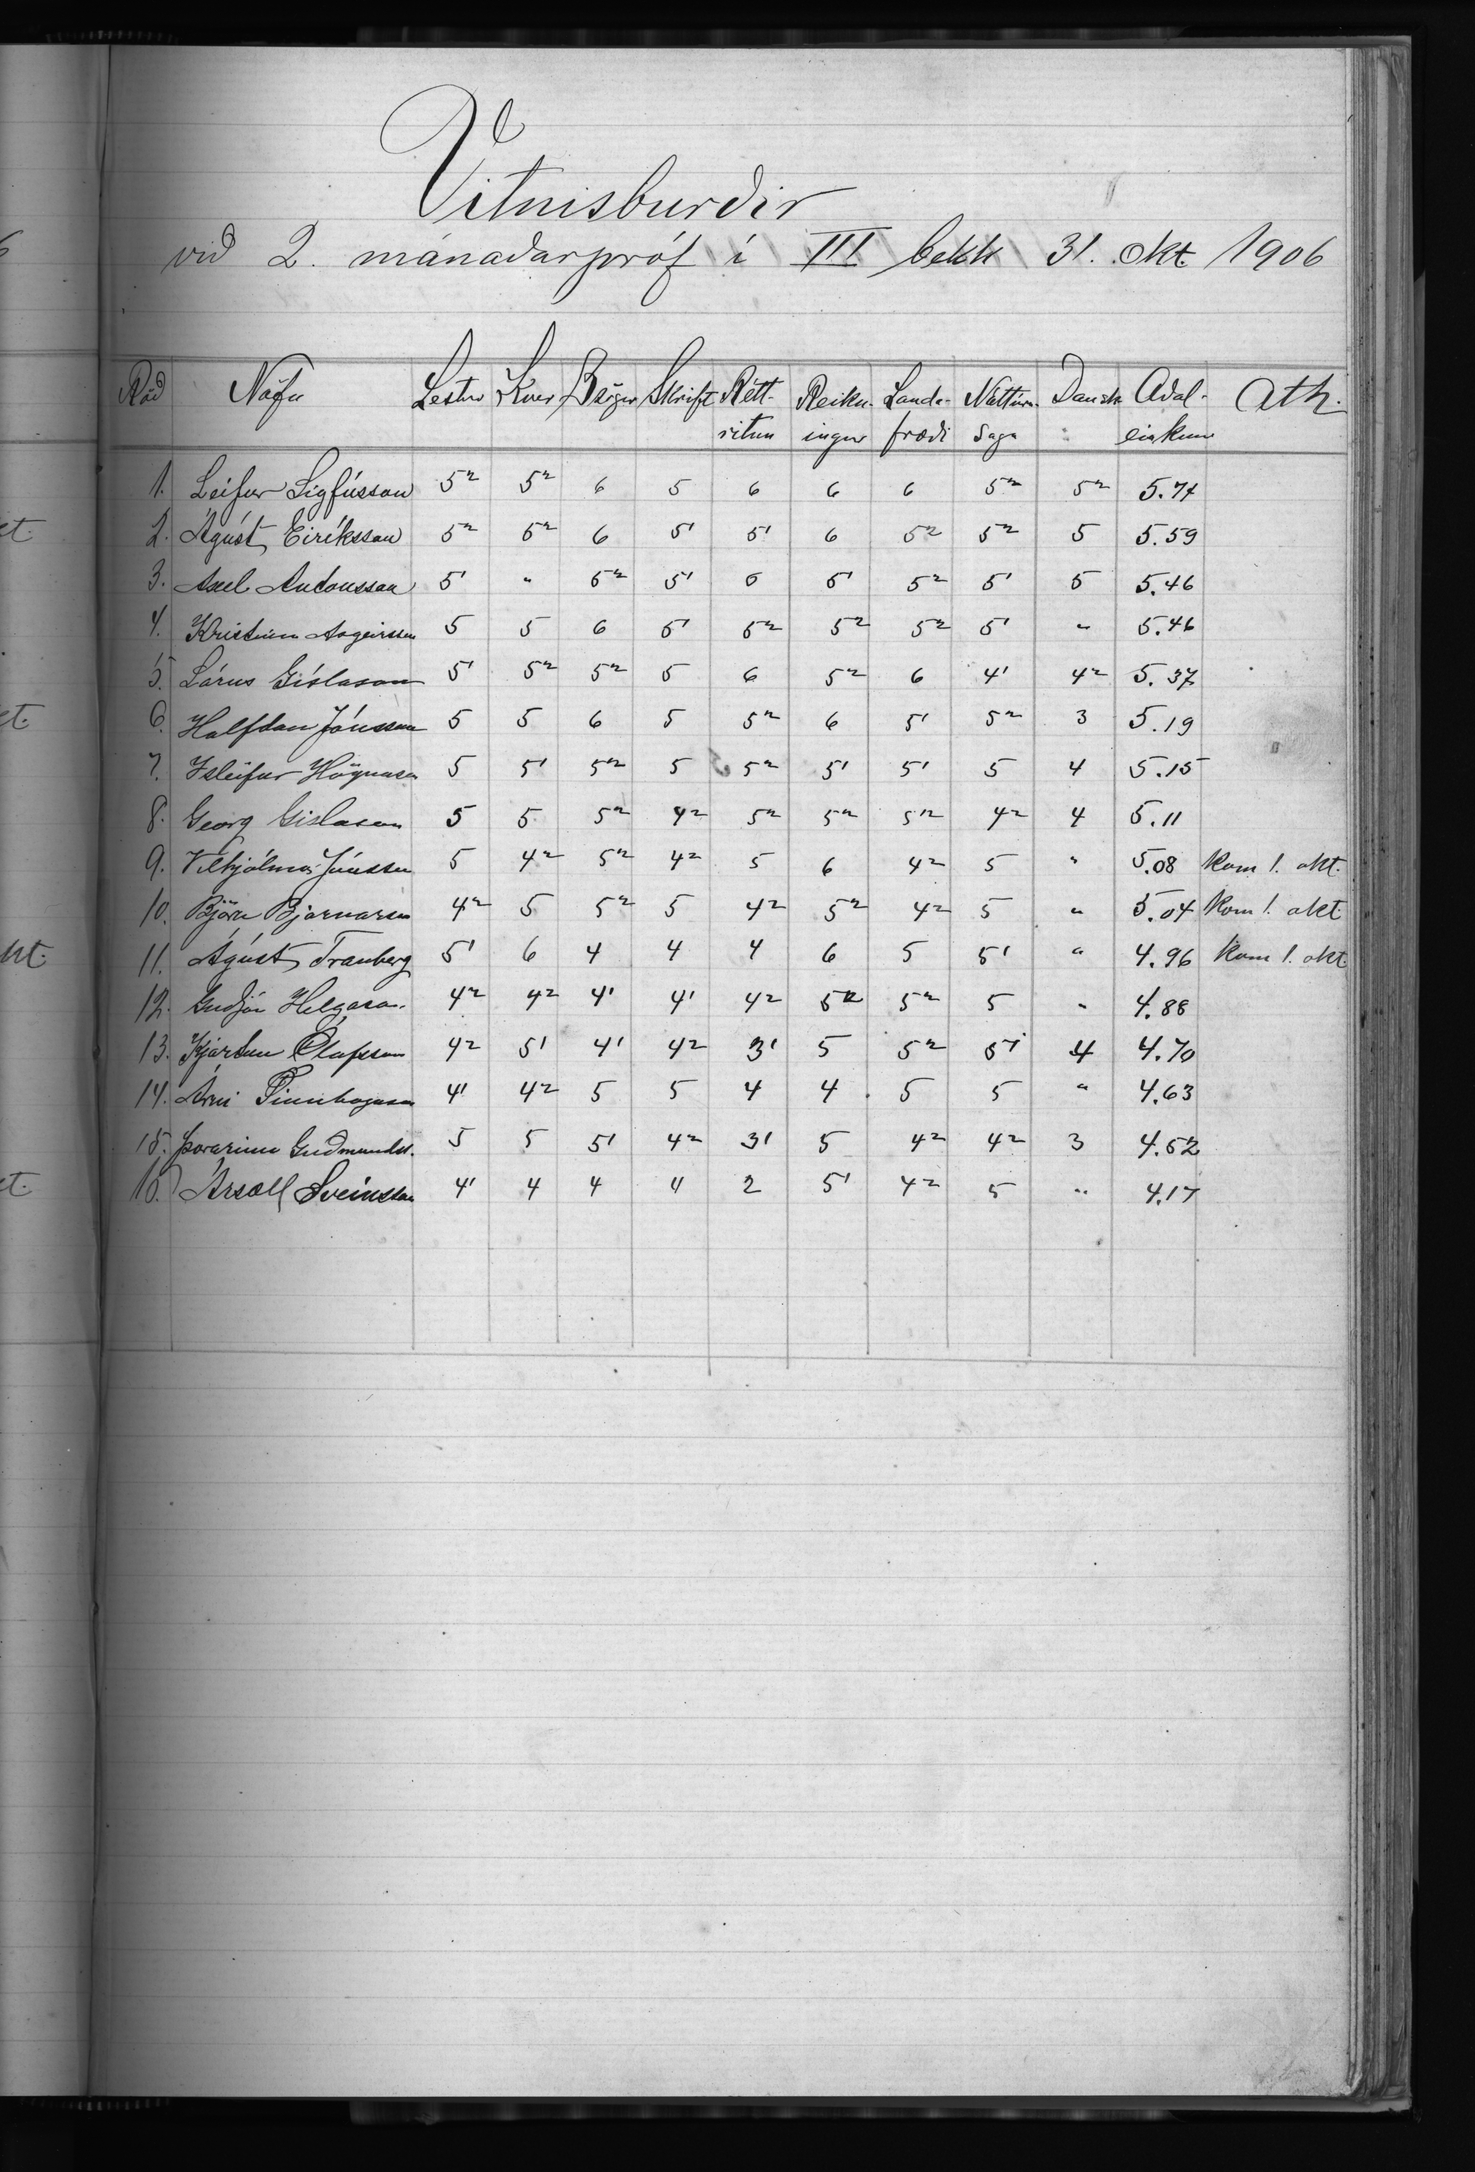 Vitnisburðir
við 2. mánaðarpróf í III bekk 31. okt. 1906
Röð Nöfn Lestur Kver Bs̄ögur Skrift Rétt- Reikn- Landa- Náttúru- Dansk Aðal- Ath.
ritun ingur fræði saga einkunn
1. Leifur Sigfússon 5² 5² 6 5 6 6 6 5² 5² 5.74
2. Ágúst Eiríksson 5² 5² 6 5¹ 5¹ 6 5² 5² 5 5.59
3. Axel 5¹ " 5² 5¹ 6 5¹ 5² 5¹ 5 5.46
4. Kristinn Asgeirsson 5 5 6 5¹ 5² 5² 5² 5¹ " 5.46
5. Lárus Gíslason 5¹ 5² 5² 5 6 5² 6 4¹ 4² 5.37
6. Halfdan Jónsson 5 5 6 5 5² 6 5¹ 5² 3 5.19
7. Ísleifur Högnason 5 5¹ 5² 5 5² 5¹ 5¹ 5 4 5.15
8. Georg Gíslason 5 5 5² 4² 5² 5² 5² 4² 4 5.11
9. Vilhjálmur Jónsson 5 4² 5² 4² 5 6 4² 5 " 5.08 kom 1. okt.
10. Björn Bjarnarson 4² 5 5² 5 4² 5² 4² 5 " 5.04 kom 1. okt
11. Ágúst Tranberg 5¹ 6 4 4 4 6 5 5¹ " 4.96 kom 1. okt.
12. Guðjón Helgason 4² 4² 4¹ 4¹ 4² 5² 5² 5 " 4.88
13. Kjartan Ólafsson 4² 5¹ 4¹ 4² 3¹ 5 5² 5¹ 4 4.70
14. Árni Finnbogason 4¹ 4² 5 5 4 4 5 5 " 4.63
15. Þórarinn Guðmundss. 5 5 5¹ 4² 3¹ 5 4² 4² 3 4.52
16. Ársæll Sveinsson 4¹ 4 4 4 2 5¹ 4² 5 " 4.17